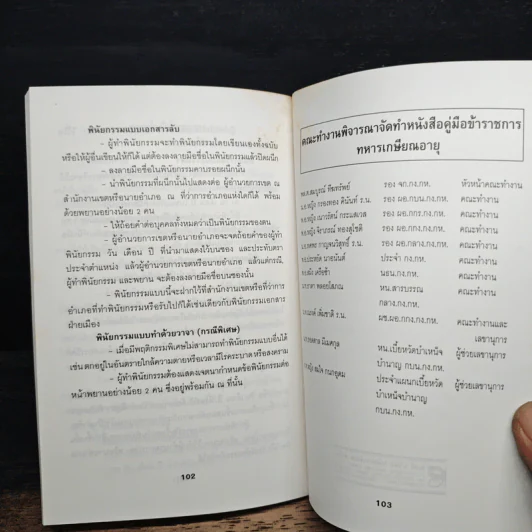 พินัยกรรมแบบเอกสารลับ
- ผู้ทำพินัยกรรมจะทำพินัยกรรมโดยเขียนเองทั้งฉบับ
หรือให้ผู้อื่นเขียนให้ก็ได้ แต่ต้องลงลายมือชื่อในพินัยกรรมแล้วปิดผนึก
- ลงลายมือชื่อในพินัยกรรมคาบรอยผนึกนั้น
- นำพินัยกรรมที่ผนึกนั้นไปแสดงต่อ ผู้อำนวยการเขต ณ
สำนักงานเขตหรือนายอำเภอ ณ ที่ว่าการอำเภอแห่งใดก็ได้ พร้อม
ด้วยพยานอย่างน้อย 2 คน
- ให้ถ้อยคำต่อบุคคลทั้งหมดว่าเป็นพินัยกรรมของตน
- ผู้อำนวยการเขตหรือนายอำเภอจะจดถ้อยคำของผู้ทำ
พินัยกรรม วัน เดือน ปี ที่นำมาแสดงไว้บนซอง และประทับตรา
ประจำตำแหน่ง แล้วผู้อำนวยการเขตหรือนายอำเภอ แล้วแต่กรณี,
ผู้ทำพินัยกรรม และพยาน จะต้องลงลายมือชื่อบนซองนั้น
- พินัยกรรมแบบนี้จะฝากไว้ที่สำนักงานเขตหรือที่ว่าการ
อำเภอที่ทำพินัยกรรมหรือรับไปก็ได้เช่นเดียวกับพินัยกรรมเอกสาร
ฝ่ายเมือง
พินัยกรรมแบบทำด้วยวาจา (กรณีพิเศษ)
- เมื่อมีพฤติการณ์พิเศษไม่สามารถทำพินัยกรรมแบบอื่นได้
เช่น ตกอยู่ในอันตรายใกล้ความตายหรือเวลามีโรคระบาด หรือสงคราม
- ผู้ทำพินัยกรรมต้องแสดงเจตนากำหนดข้อพินัยกรรมต่อ
หน้าพยานอย่างน้อย 2 คน ซึ่งอยู่พร้อมกัน ณ ที่นั้น
102
คณะทำงานพิจารณาจัดทำหนังสือคู่มือข้าราชการ
ทหารเกษียณอายุ
รอง จก.กง.กห. หัวหน้าคณะทำงาน
รอง ผอ.กบน.กง.กห. คณะทำงาน
รอง ผอ.กกง.กง.กห. คณะทำงาน
รอง ผอ.กกง.กง.กห. คณะทำงาน
รอง ผอ.กลาง.กง.กห. คณะทำงาน
ประจำ กง.กห. คณะทำงาน
นธน.กง.กห. คณะทำงาน
หน.สารบรรณ คณะทำงาน
กลาง.กง.กห.
ผช.ผอ.กกง.กง.กห. คณะทำงานและ
เลขานุการ
หน.เบี้ยหวัดบำเหน็จ ผู้ช่วยเลขานุการ
บำนาญ กบน.กง.กห.
ประจำแผนกเบี้ยหวัด ผู้ช่วยเลขานุการ
บำเหน็จบำนาญ
กบน.กง.กห.
103